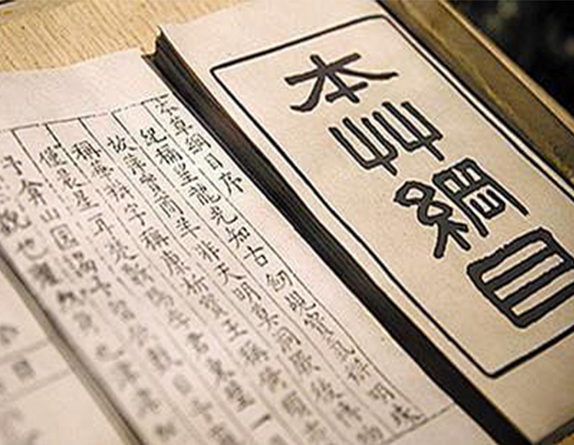 本艸綱目
本草綱目序
紀稱望龍光知古劍覘寶氣辨明珠
故萍實商羊非天明莫洞厥後博物
稱華辨字稱康析寶玉稱倚頓
僅晨星耳楚蘄陽李君東璧一
予弇山園謁予留飲數日予